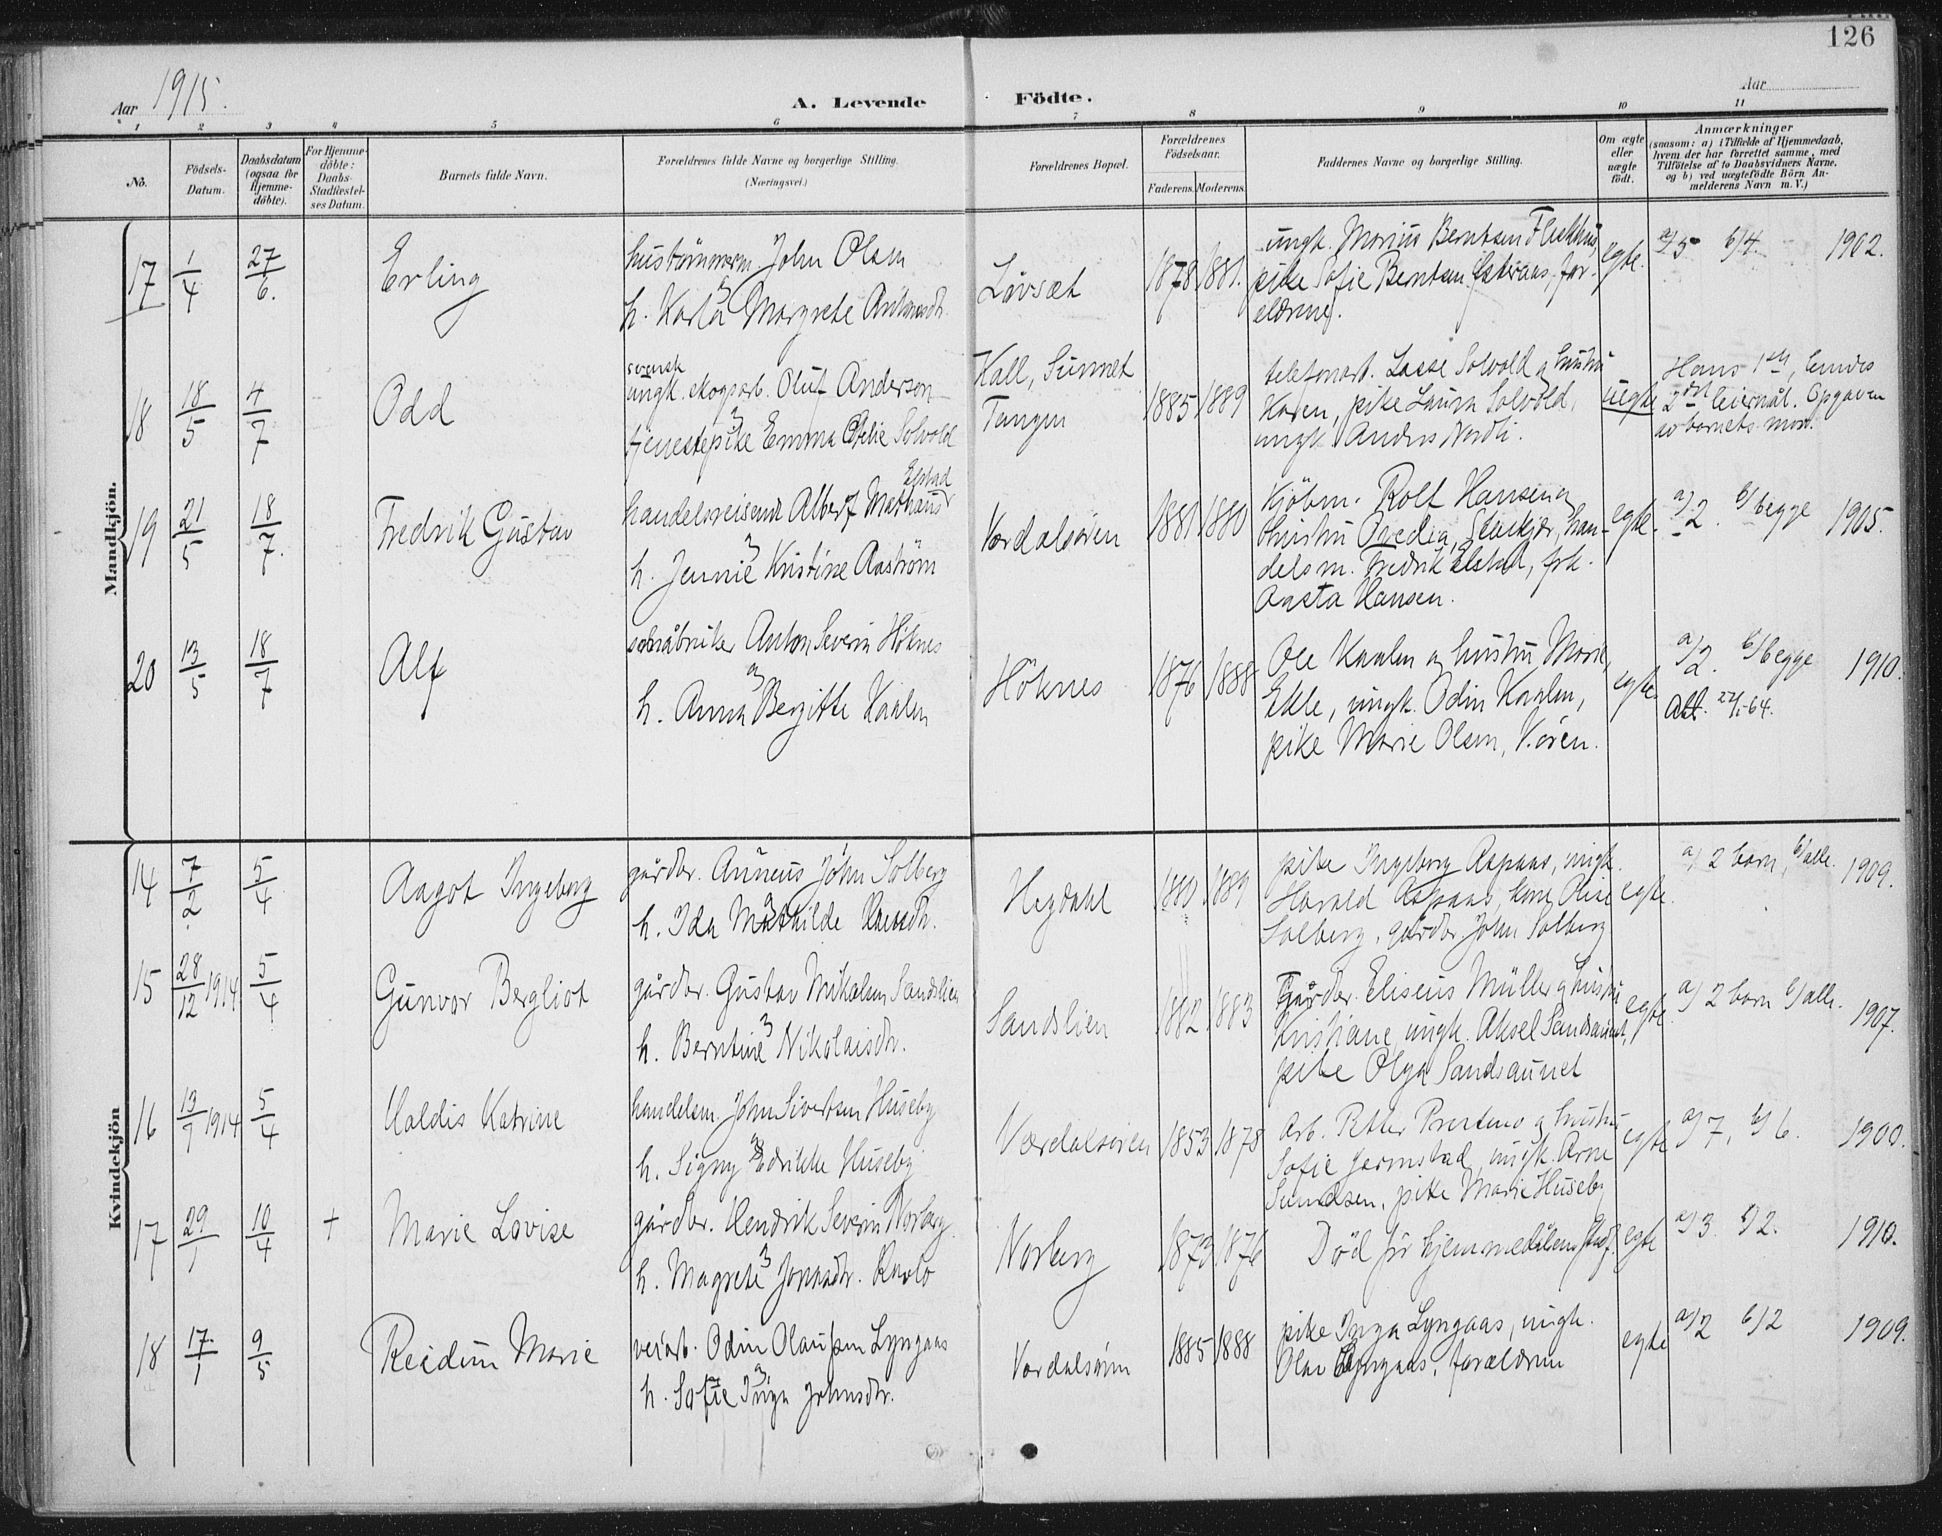 126
Aar 1915.
A. Levende Födte.
Aar
1 2 3 4 5 6 7 8 9 10 11
No.
Födsels-
Datum.
Daabsdatum
(ogsaa for
Hjemme-
döbte).
For Hjemme-
döbte:
Daabs-
Stadfæstel-
ses Datum.
Barnets fulde Navn.
Forældrenes fulde Navne og borgerlige Stilling.
(Næringsvei.)
Forældrenes Bopæl.
Forældrenes
Födselsaar.
Faderens. Moderens.
Faddernes Navne og borgerlige Stilling.
Om ægte
eller
uægte
födt.
Anmærkninger
(saasom: a) i Tilfælde af Hjemmedaab,
hvem der har forrettet samme, med
Tilföielse af to Daabsvidners Navne.
og b) ved uægtefödte Börn An-
melderens Navn m. V.)
Mandkjön.
17 1/4 27/6. Erling
hustömmerm. John Olsen
h. Karla Margrete Antonsdr.
Lövsæt
1878 1881.
ungk. Marius Berntsen
pike Sofie Berntsen, for-
eldrene.
egte.
a/5 b/4. 1902.
18 18/5 4/7 Odd
svensk
ungk. skogsarb. Olut Anderson
tjenestepike Emma Otelie Solvold
Kall, Sunnet
Tangen
1885 1889
telefonarb. Lasse Solvold og hustru
Karen, pike Laura Solvold,
ungk. Anders Nordli.
uegte
Hans 1ste, hendes
2det leiermål. Opgaven
av barnets mor.
19 21/5 18/7. Fredrik Gustav
Elstad
handelsreisende Albert
h. Jennie Kristine Aaström
Værdalsören
1881 1880
Kjöbm. Rolf Hansen og
hustru Ovedia, Stenkjær, han-
delsm. Fredrik Elstad, frk.
Aasta Hansen.
egte.
a/2. b/begge 1905.
20 13/5 18/7 Alf
Anton Severin Höknes
h. Anna Bergitte Kaalen
Höknes
1876 1888
Ole Kaalen og hustru Marie,
Ekle, ungk. Odin Kaalen,
pike Marie Olsen, V.ören.
egte
a/2. b/begge 1910.
Att. 22/1-64.
Kvindekjön
14 7/2 5/4 Aagot Ingeborg
gårdbr. John Solberg
h. Ida Mathilde
Hegdahl
1880 1889
pike Ingeborg Aspaas, ungk.
Harald Aspaas, kone
Solberg, gårdbr John Solberg
egte.
a/ 2 barn, b/alle. 1909.
15 28/12 1914 5/4 Gunvor Bergliot
gårdbr. Gustav Mikalsen Sandslien
h. Berntine Nikolaisdr.
Sandslien
1882 1883
Gårdbr. Eliseus Müller og hustru
Kristiane, ungk. Aksel Sandsaunet,
pike Olga Sandsaunet
egte.
a/ 2 barn b/alle. 1907.
16 13/7 1914 5/4 Valdis Katrine
handelsm. John Sivertsen Huseby
h. Signy Edrikke Huseby
Værdalsören
1853 1878
Arb. Petter og hustru
Sofie Jermstad, ungk. Arne
pike Marie Huseby
egte
a/7, b/6. 1900.
17 29/1 10/4 + Marie Lovise
gårdbr. Hendrik Severin Norberg.
h. Magrete Jonasdr.
Norberg
1873 1876
Död för hjemmedåbens stadf.
egte
a/3. b/2. 1910.
18 17/1 9/5 Reidun Marie
veiarb. Odin Olaussen Lyngaas
h. Sofie Inga Johnsdtr.
Værdalsören
1885 1888
pike Inga Lyngaas, ungk.
Olav Lyngaas, forældrene
egte
a/2 b/2 1909.